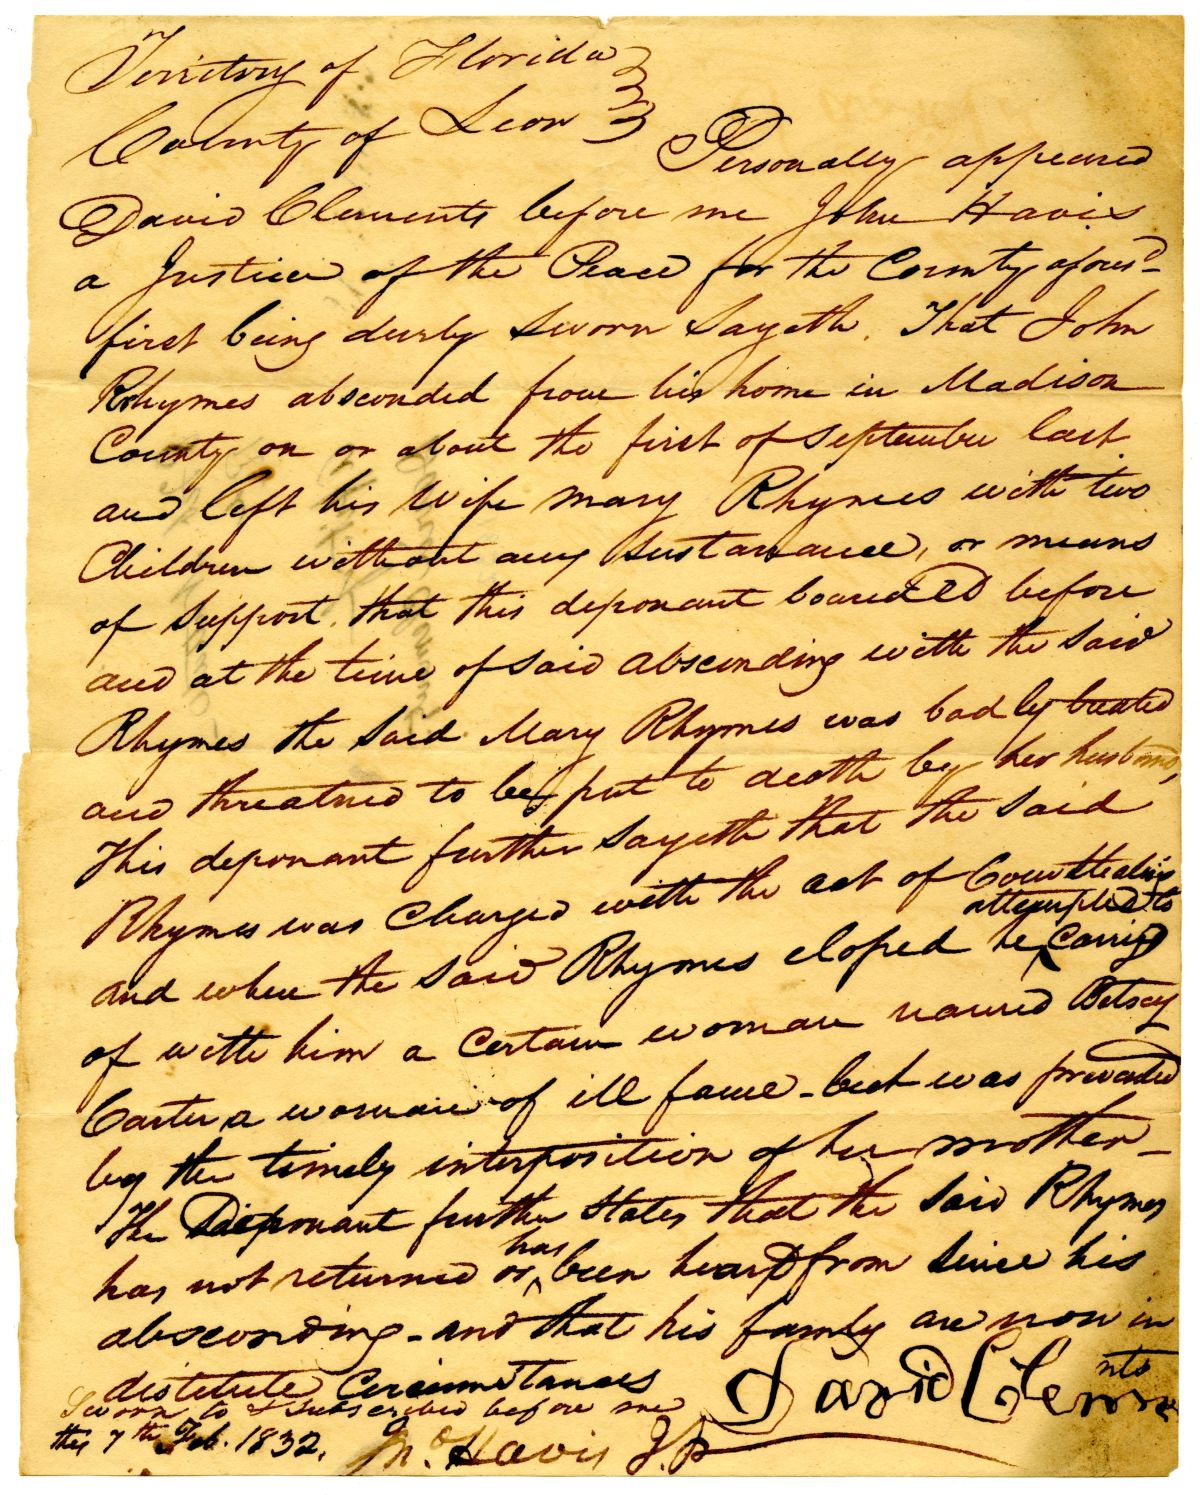 Territory of Florida
County of Leon
Personally appeared
David Clements before me John Havis
a Justice of the Peace for the County afores^d
first being duely sworn Sayeth. That John
Rhymes absconded from his home in Madison
County on or about the first of September last
and left his Wife Mary Rhymes with two
Children without any sustanance, or means
of support. that this deponant boarded before
and at the time of said absconding with the said
Rhymes the said Mary Rhymes was badly treated
and threatned to be put to death by her husband,
This deponant further Sayeth that the said
Rhymes was Charged with the act of Cow stealing
and when the said Rhymes eloped he attempted to Carry
of with him a Certain woman named Betsey
Carter a woman of ill fame - but was prevented
by the timely interposition of her mother -
The Deponant further States that the said Rhymes
has not returned or has been heard from since his
absconding - and that his family are now in
distitute Circumstances
David Clements
Sworn to & subscribed before me
this 7th Feb. 1832.
Jno. Havis J.P